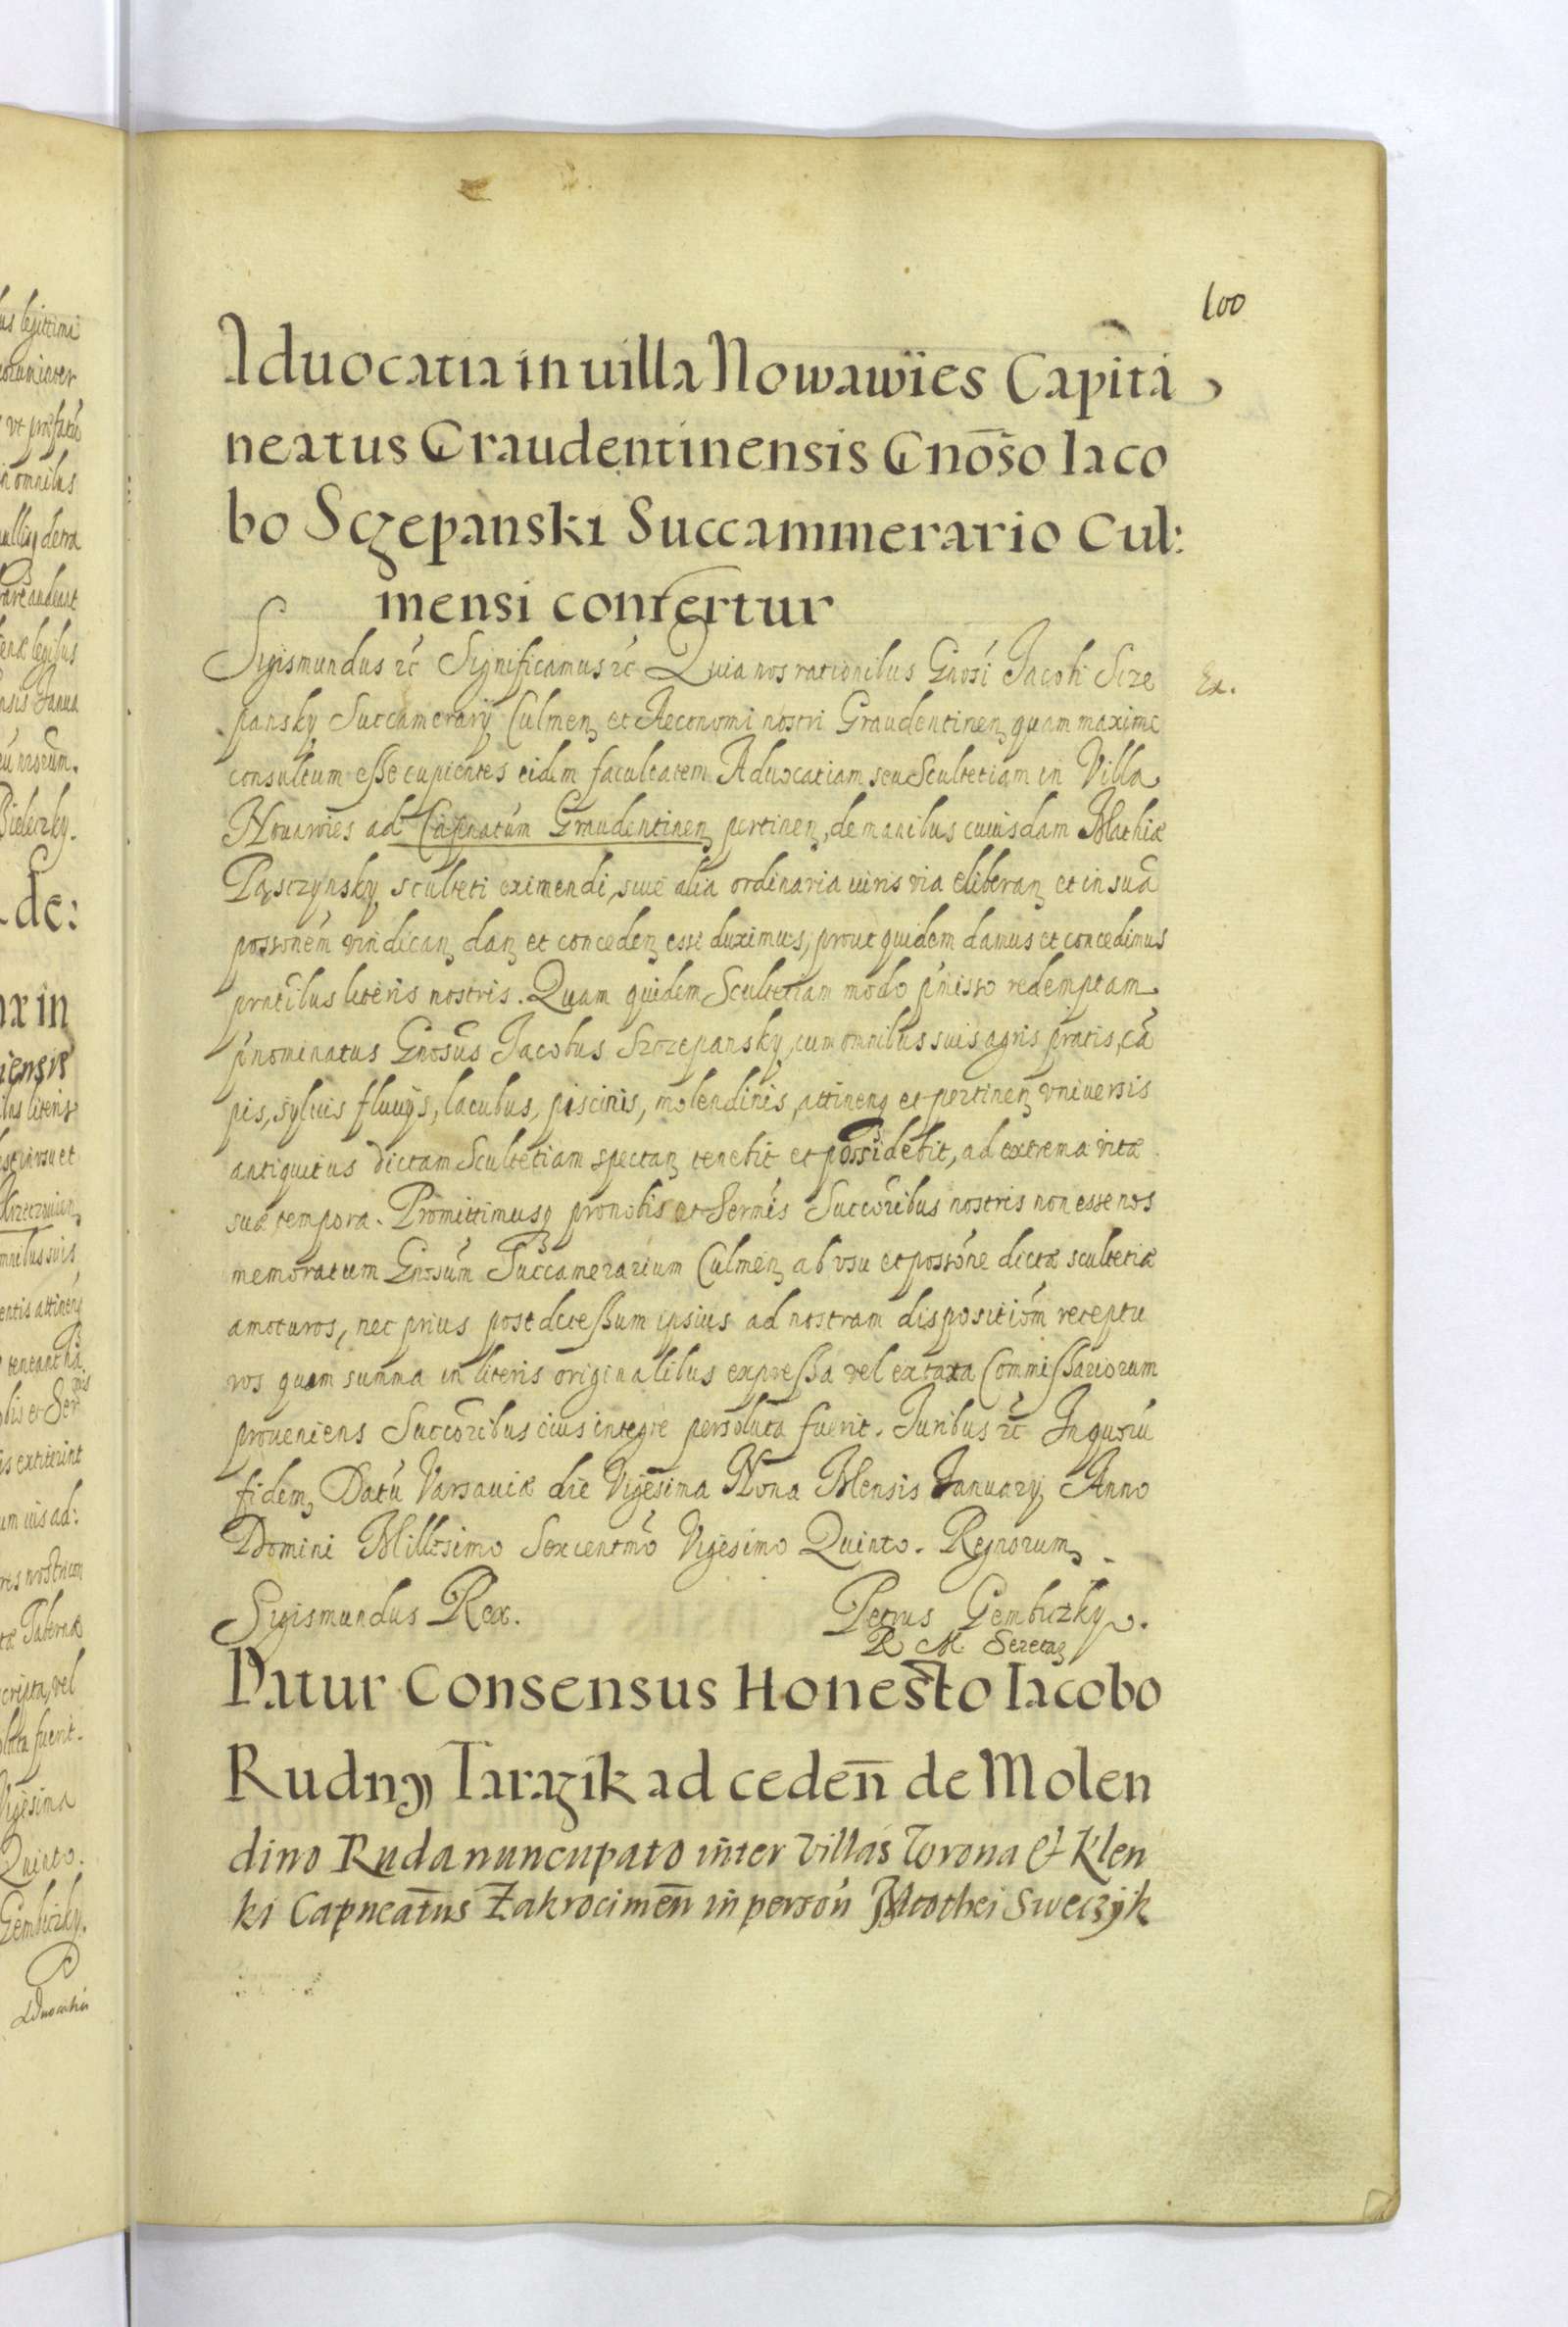 100
Aduocatia in uilla Nowawïes Capita
neatus Graudentinensis Gnōso Iaco
bo Sczepanski Succammerario Cul:
mensi confertur
Sigismundus rc̃ Significamus rc̃ Quia nos rationibus Gnosi Jacobi Scze
Ex.
pansky Succamerarij Culmen̨ et Aeconomi nostri Graudentinen̨ quam maxime
consultum esse cupientes eidem facultatem Aduocatiam seu Scultetiam in Villa
Nouawies ad Capnatum Graudentinen̨ pertinen̨, de manibus cuiusdam Mathiæ
Pąsczynsky sculteti eximendi, siue alia ordinaria iuris via eliberan̨ et in suã
possonẽm vindican̨ dan̨ et conceden̨ esse duximus, prout quidem damus et concedimus
prntibus literis nostris. Quam quidem Scultetiam modo pmisso redemptam
pnominatus Gnosus Jacobus Szczepansky, cum omnibus suis agris pratis, cã
pis, syluis fluuijs, lacubus, piscinis, molendinis, attinenq et pertinen̨ vniuersis
antiquitus dictam Scultetiam spectan̨ tenebit et possidebit, ad extrema vitæ
suæ tempora. Promittimusq pro nobis et Sermis Succoribus nostris non esse nos
memoratum Gnosum Succamerarium Culmen̨ ab vsu et possone dictæ scultetiæ
amoturos, nec prius post decessum ipsius ad nostram dispositiom receptu
ros quam summa in literis originalibus expressa vel ex taxa Commissariorum
proueniens Succoribus eius integre persoluta fuerit. Juribus rc̃ In quorũ
fidem, Datũ Varsauiæ die Vigesima Nona Mensis January Anno
Domini Millesimo Sexcentmo Vigesimo Quinto. Regnorum
Sigismundus Rex. Petrus Gembiczky.
R M Secretaꝫ
Datur Consensus Honesto Iacobo
Rudny Tarazik ad ceden̄ de Molen
dino Ruda nuncupato inter Villas Torona & Klen
ki Capneatus Zakrocimen̄ in person Matthei Sweczÿk